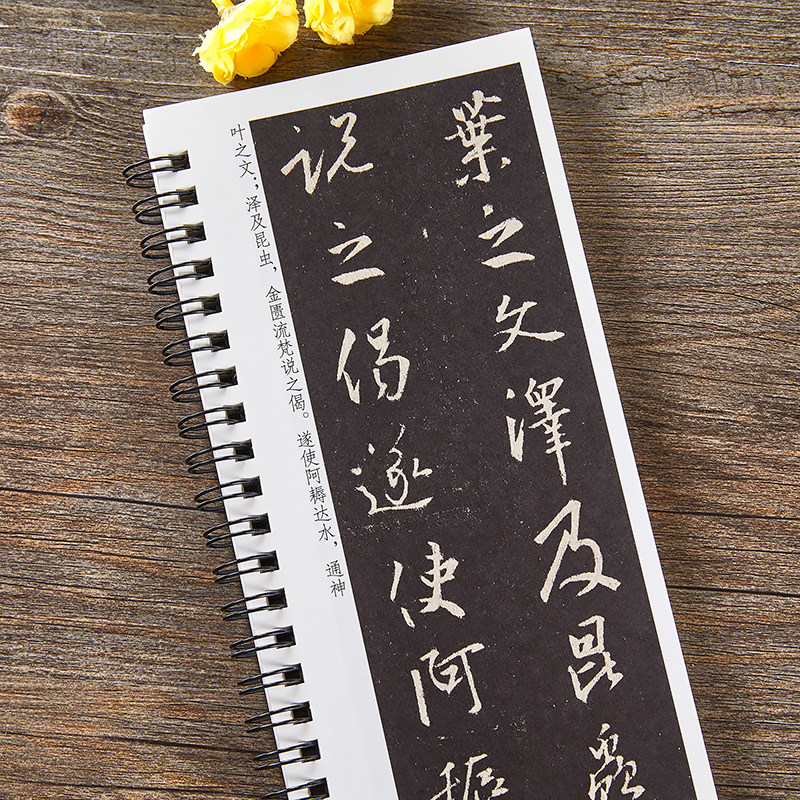 葉之文澤及昆蟲
説之偈遂使阿
叶之文；泽及昆虫，金匮流梵说之偈。遂使阿耨达水，通神